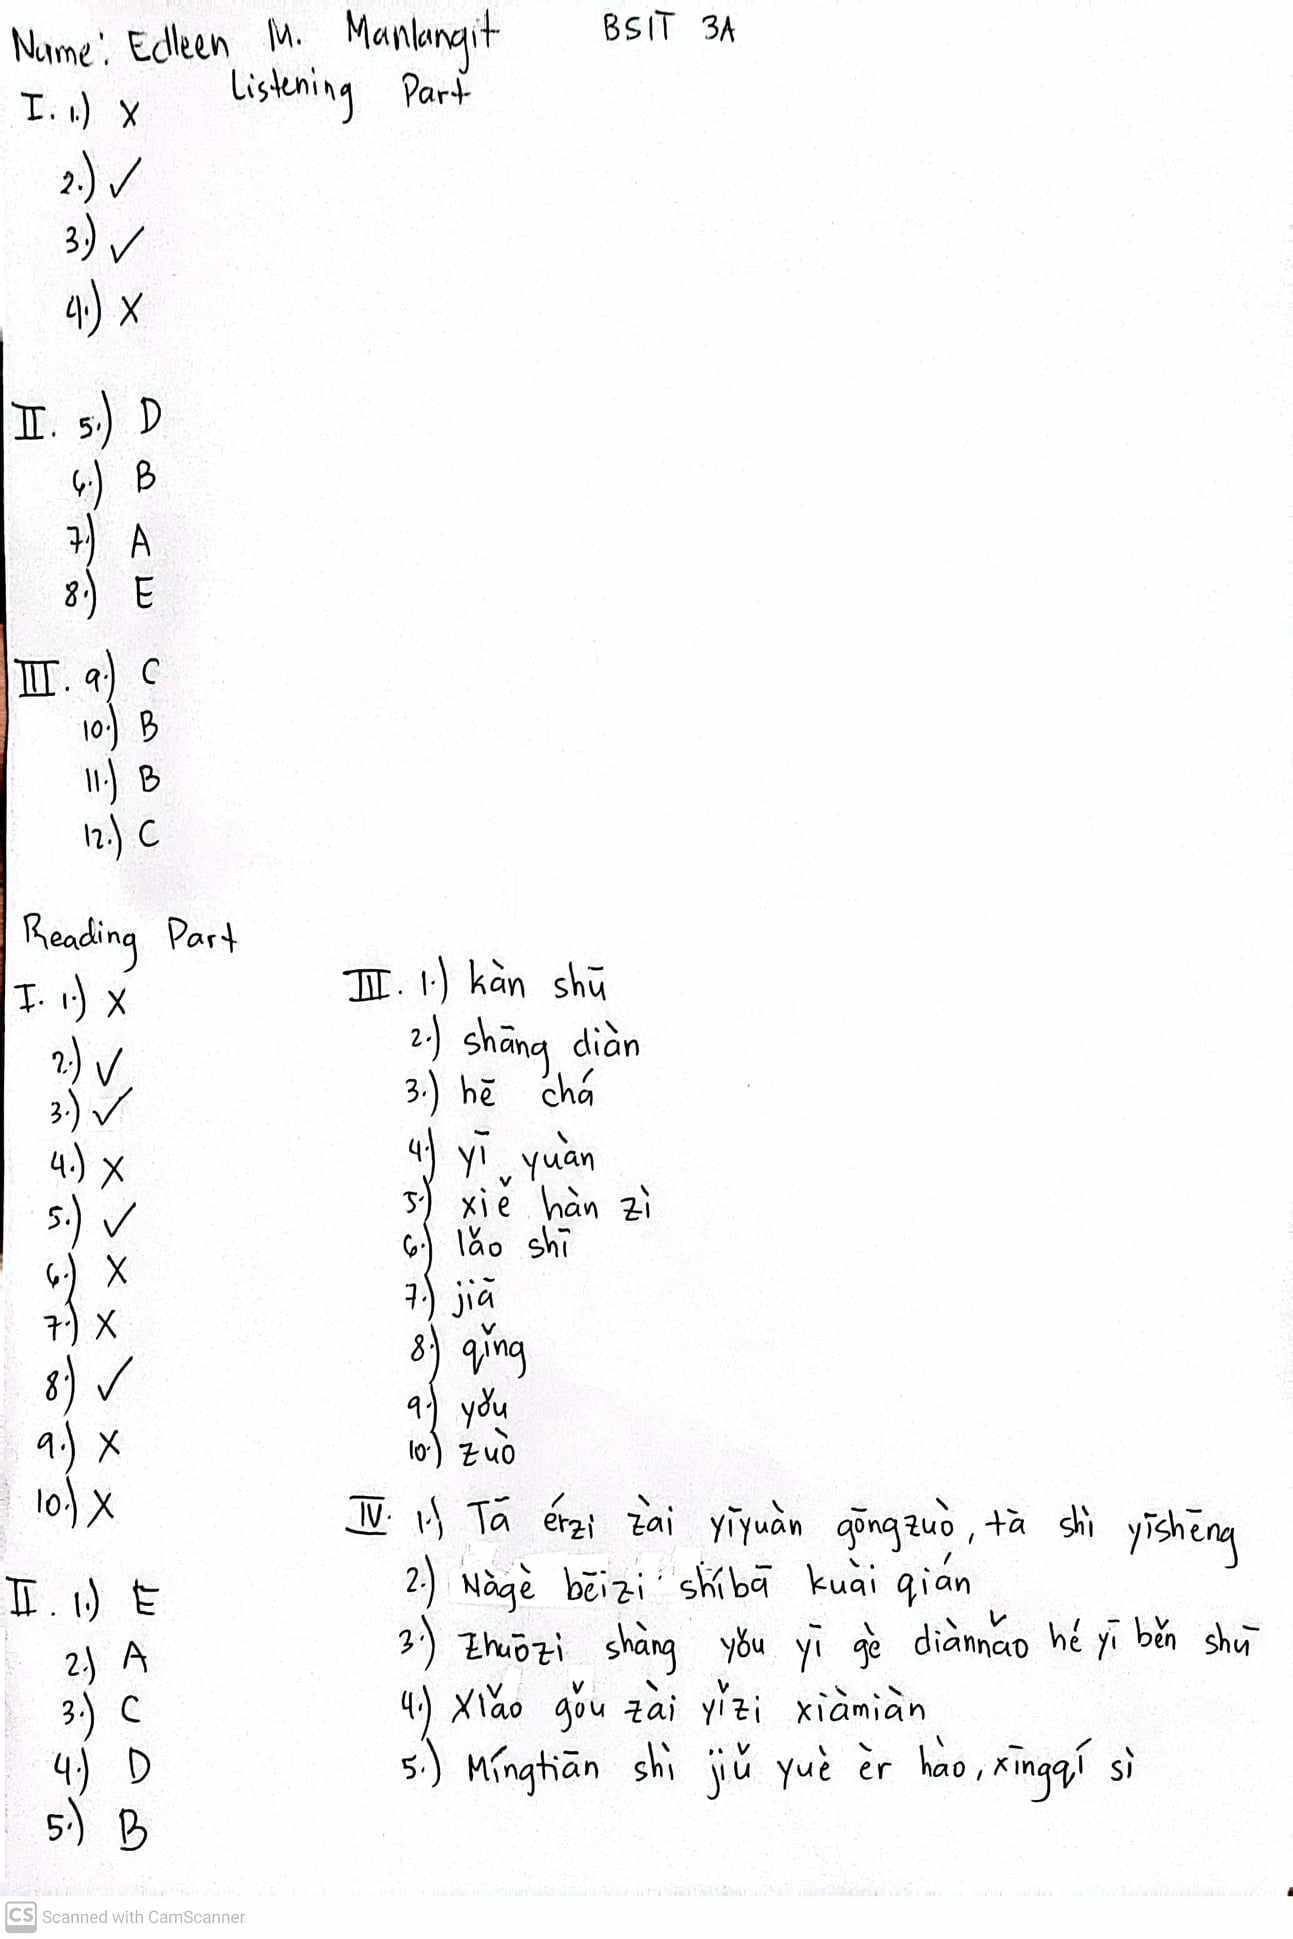 Name: Edleen M. Manlangit BSIT 3A
Listening Part
I. 1.) X
2.) ✓
3.) ✓
4.) X
II. 5.) D
6.) B
7.) A
8.) E
III. 9.) C
10.) B
11.) B
12.) C
Reading Part
I. 1.) X
2.) ✓
3.) ✓
4.) X
5.) ✓
6.) X
7.) X
8.) ✓
9.) X
10.) X
II. 1.) E
2.) A
3.) C
4.) D
5.) B
III. 1.) kàn shū
2.) shāng diàn
3.) hē chá
4.) yī yuàn
5.) xiě hàn zì
6.) lǎo shī
7.) jiā
8.) qǐng
9.) yǒu
10.) zuò
IV. 1.) Tā érzi zài yīyuàn gōngzuò, tà shì yīshēng
2.) Nàgè bēizi shíbā kuài qián
3.) Zhuōzi shàng yǒu yī gè diànnǎo hé yī běn shū
4.) Xiǎo gǒu zài yǐzi xiàmiàn
5.) Míngtiān shì jiǔ yuè èr hào, xīngqí sì
CS Scanned with CamScanner